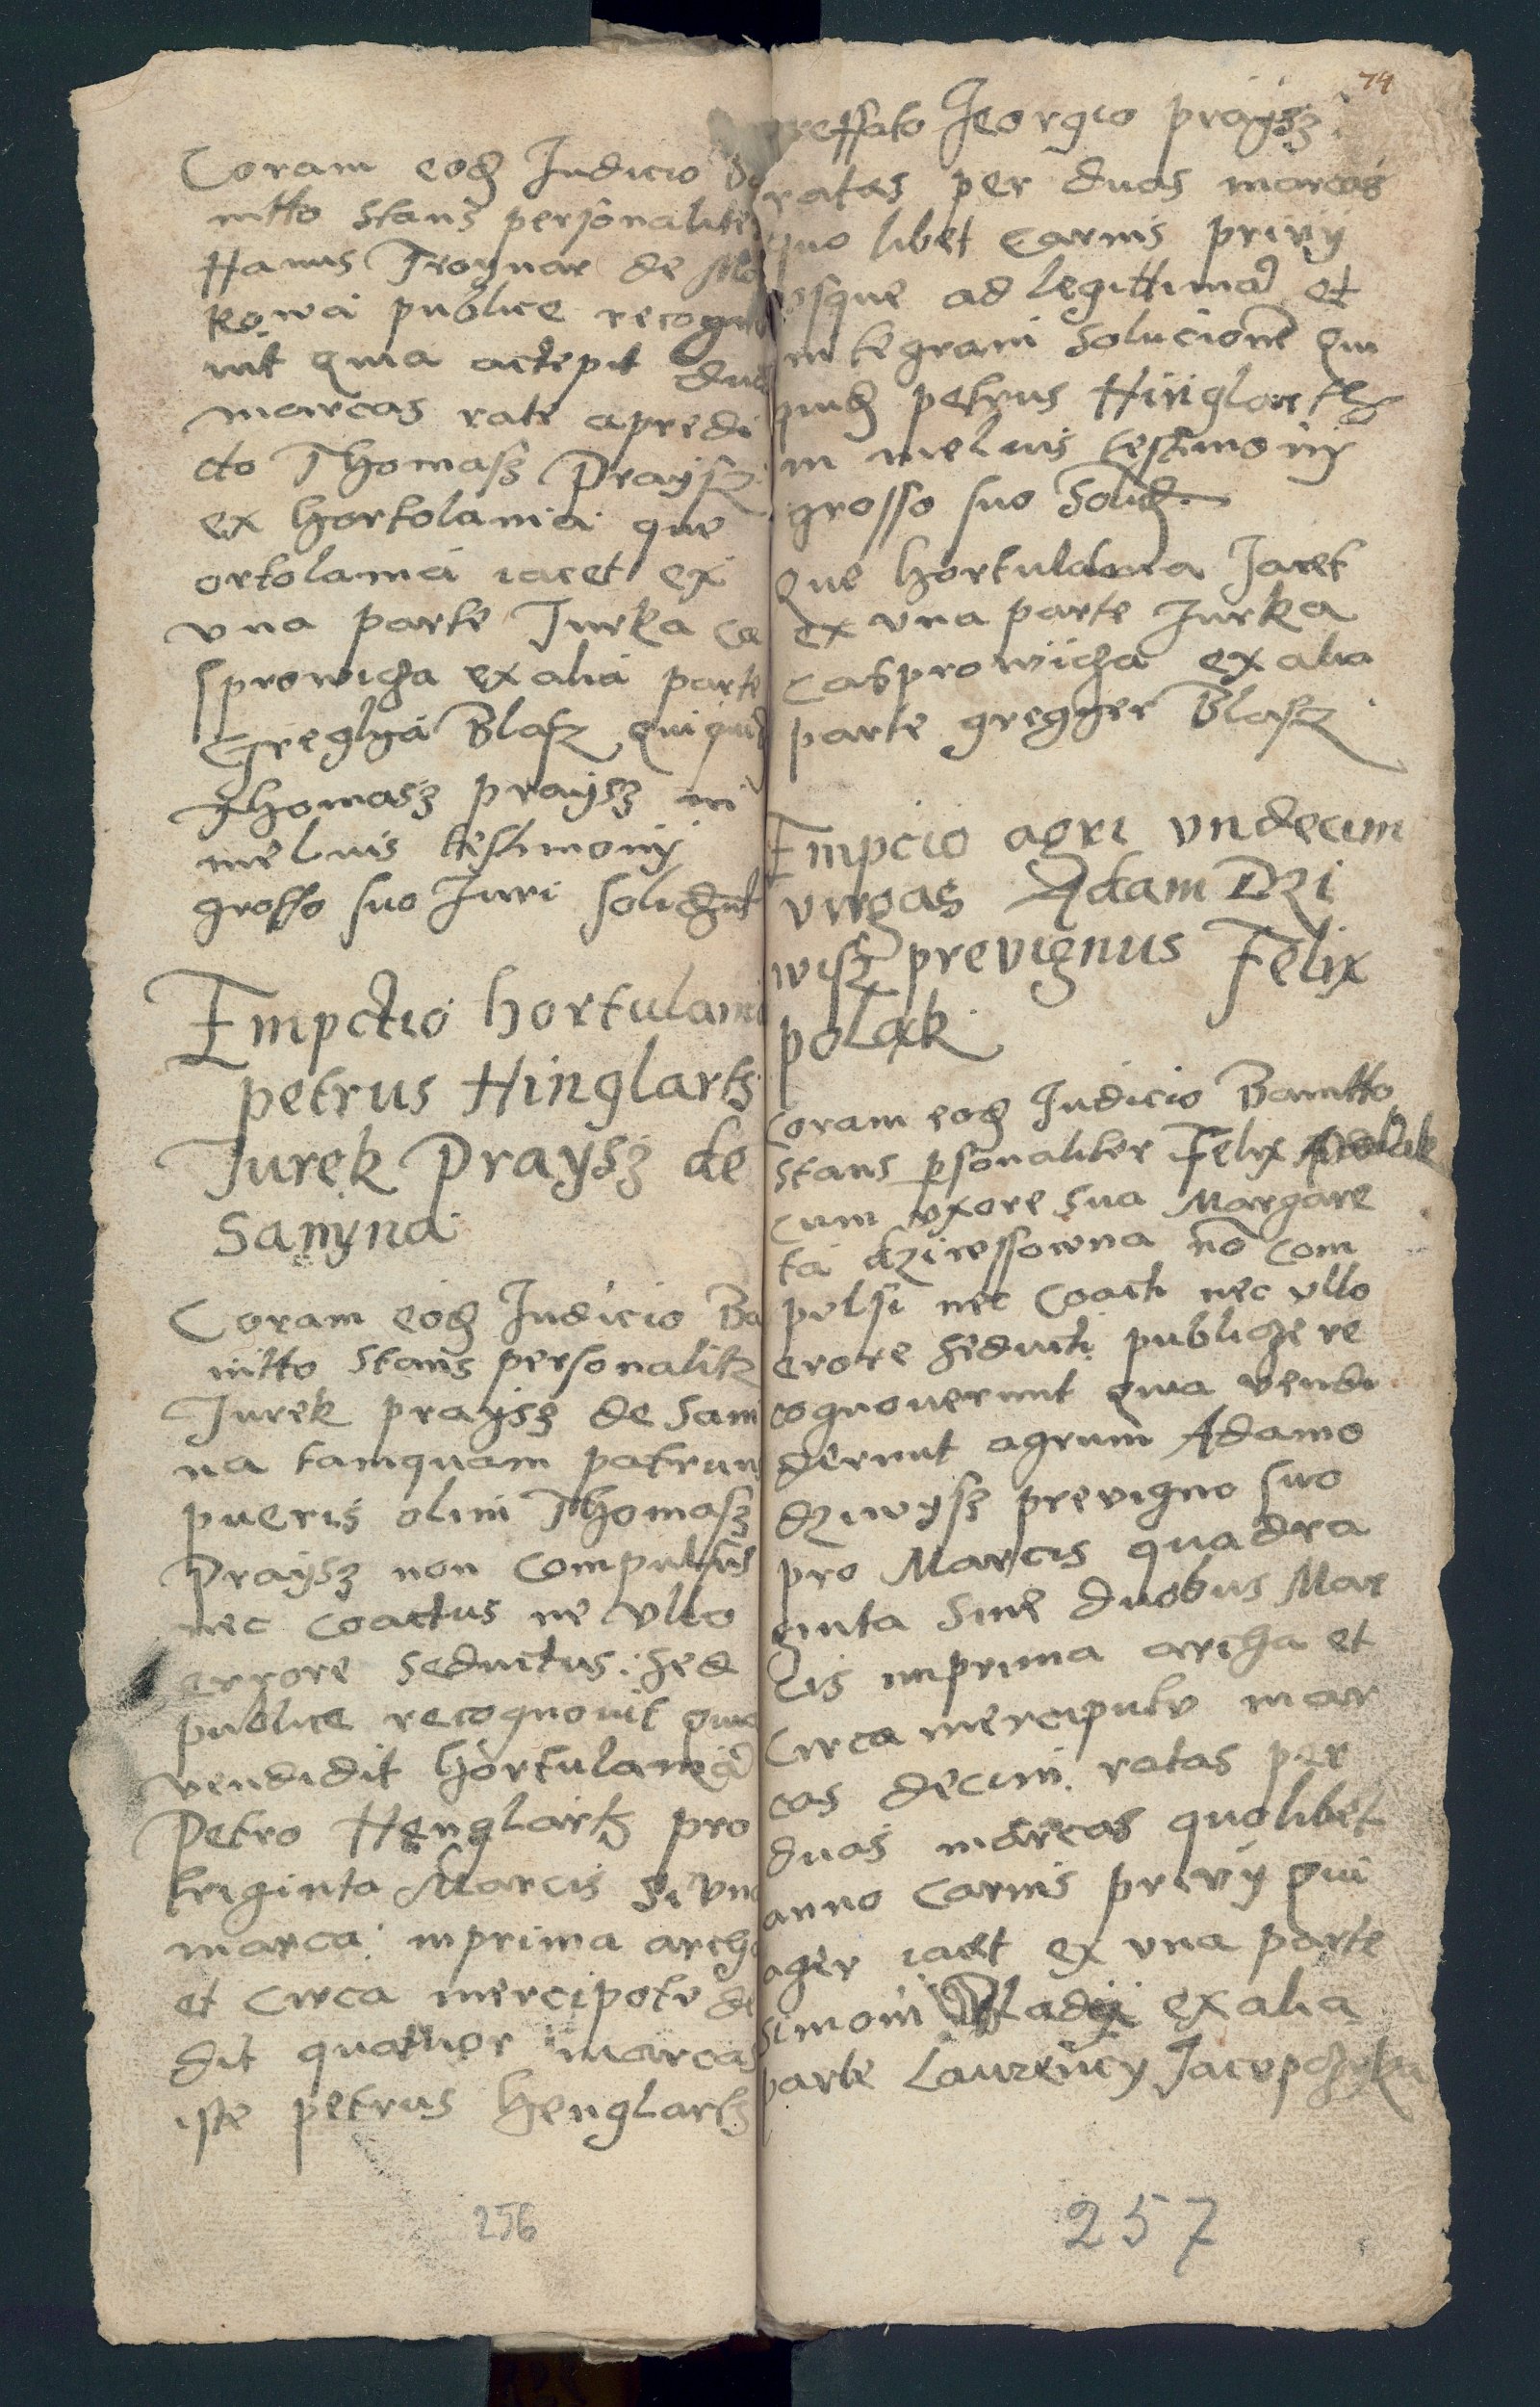 Coram eod Judicio Ba
nitto stans personaliter
Hanus Troynar de Ma
kowa publice recogno
uit quia acčepit duas
marcas rate apredi
cto Thomasz Praÿsz
ex hortolania que
ortolania iacet ex
vna parte Jurka Ca
sprowicza ex alia parte
Greglya Blasz quiquid
Thomasz praÿsz in
meluis testimonÿ
grosso suo Juri solidaut
Empctio hortulani
petrus Hinglarts
Jurek Praÿsz de
Sanÿna
Coram eod Judicio Ba
nitto stans personalitr
Jurek praÿsz de Sani
na tamquam patruus
pueris olim Thomasz
Praÿsz non Compulsus
nec Coactus ne vllo
errore seductus: sed
publice recognouit quia
vendidit hortulania
Petro Henglartz pro
triginta Marcis si vna
marca: inprima archa
et Circa mercipotu de
dit quatuor marcas
iste petrus henglartz
256
74
preffato Jeorgio praÿsz
ratas per duas marcas
quo libet Carnis privÿ
vsque ad legittima et
integram Solucione Qui
quid petrus Hinglartz
in meluis testimonÿ
grosso suo Solid
Que hortulania Jacet
ex vna parte Jurka
Casprowicza ex alia
parte gregger Blasz
Empcio agri vndecim
virgas Adam Dzi
wisz prevignus Felix
polak
Coram eod Judicio Banitto
stans psonaliter Felix polak
Cum vxore sua Margare
ta dziwessowna no Com
pulsi nec Coacti nec vllo
erore seducti publicze re
cognouerunt quia vendi
derunt agrum Adamo
dziwÿsz previgno suo
pro Marcis quadra
ginta sine duobus Mar
cis inprima archa et
Circa mercipotu mar
cas decim ratas per
duas marcas quolibet
anno Carnis privÿ qui
ager iacet ex vna parte
simoni ex alia
parte Laurency Jacupczyka
257